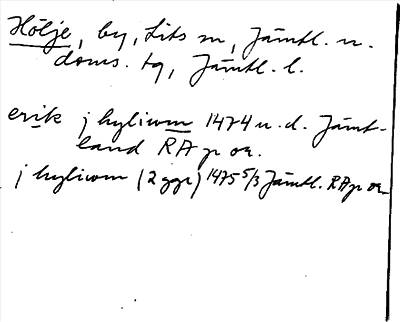 Hölje, by, Lits sn, Jämtl. n.
doms. tg, Jämtl. l.
erik j hyliom 1474 u.d. Jämt-
land RA p or.
j hyliom (2 ggr) 1475 5/3 Jämtl. RA p or.